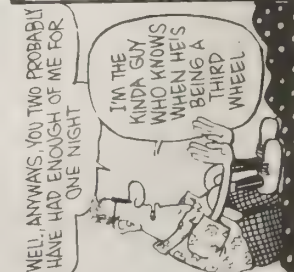 WELL, ANYWAYS, YOU TWO PROBABLY
HAVE HAD ENOUGH OF ME FOR
ONE NIGHT
I'M THE
KINDA GUY
WHO KNOWS
WHEN HE'S
BEING A
THIRD
WHEEL.